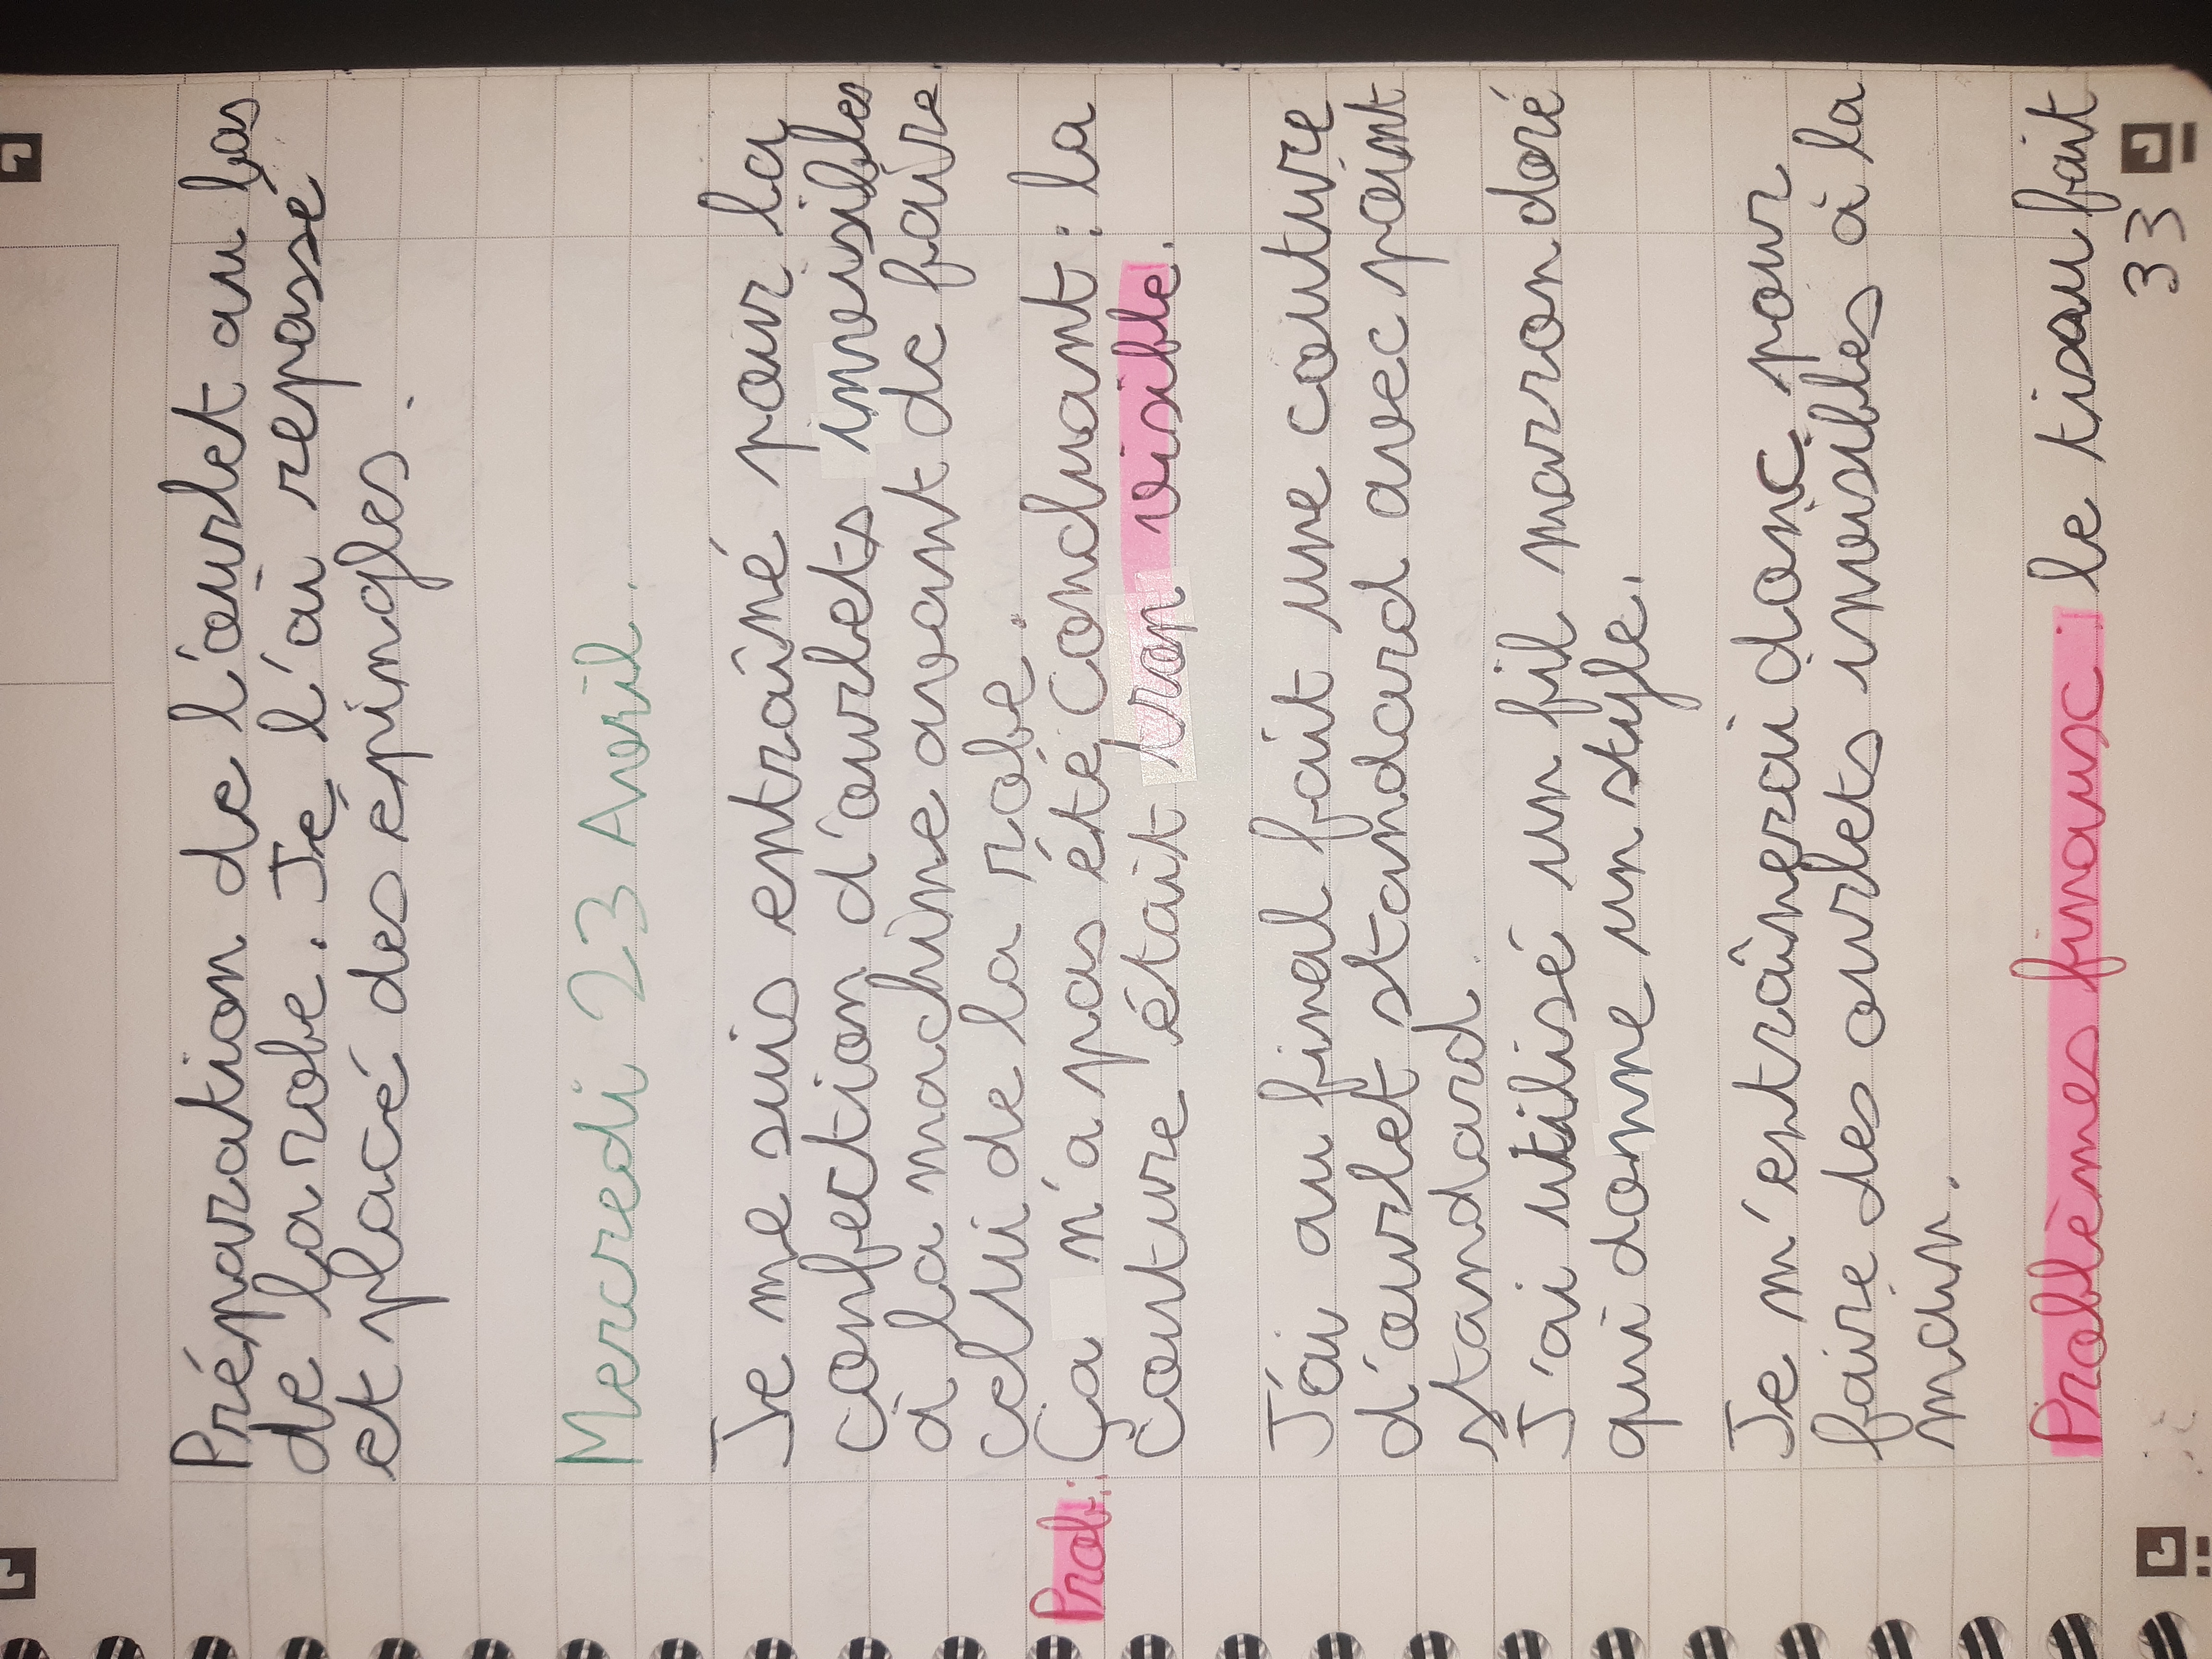 Préparation de l'ourlet au bas
de la robe. Je l'ai repassé
et placé des épingles.
Mercredi 23 Avril.
Je me suis entraîné pour la
confection d'ourlets invisibles
à la machine avant de faire
celui de la robe.
Prob: Ça n'a pas été concluant : la
couture était trop visible.
J'ai au final fait une couture
d'ourlet standard avec point
standard.
J'ai utilisé un fil marron doré
qui donne un style.
Je m'entraînerai donc pour
faire des ourlets invisibles à la
main.
Problèmes finaux : le tissu fait
33